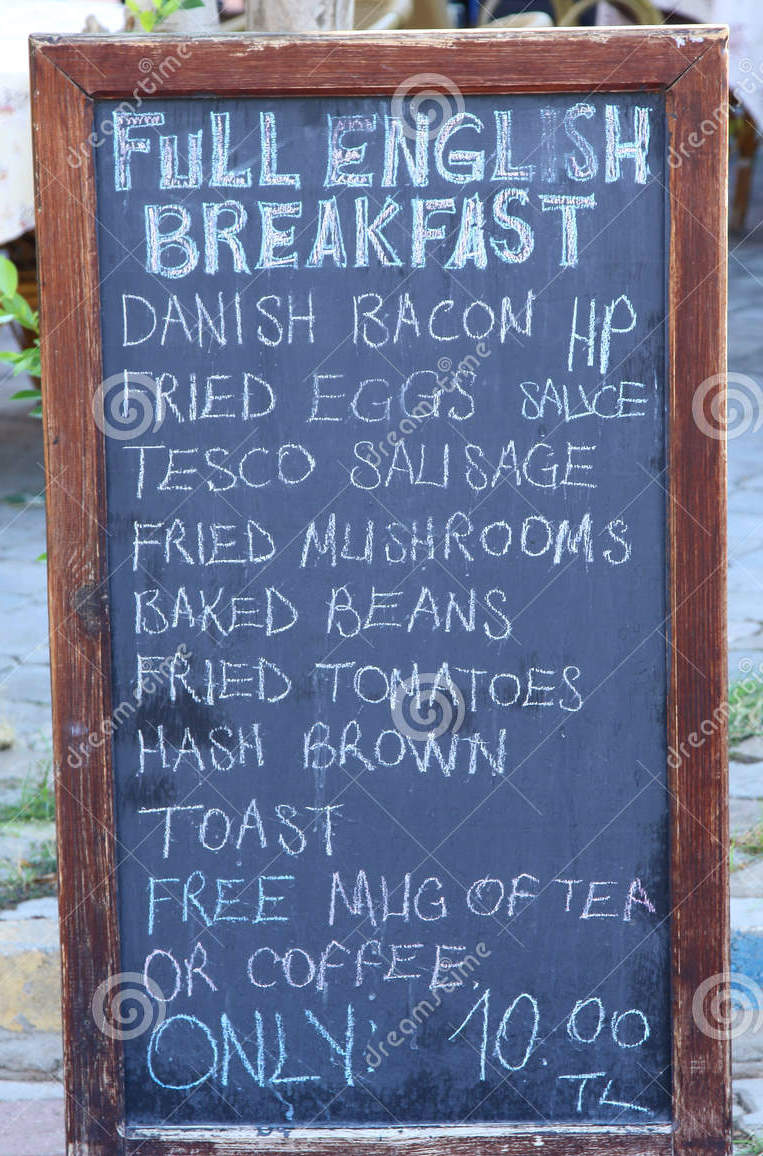 FULL ENGLISH
BREAKFAST
DANISH BACON HP
FRIED EGGS SAUCE
TESCO SAUSAGE
FRIED MUSHROOMS
BAKED BEANS
FRIED TOMATOES
HASH BROWN
TOAST
FREE MUG OF TEA
OR COFFEE.
ONLY: 10.00
TL
dreamstime
dreamstime
dreamstime
dreamstime
dreamstime
dreamstime